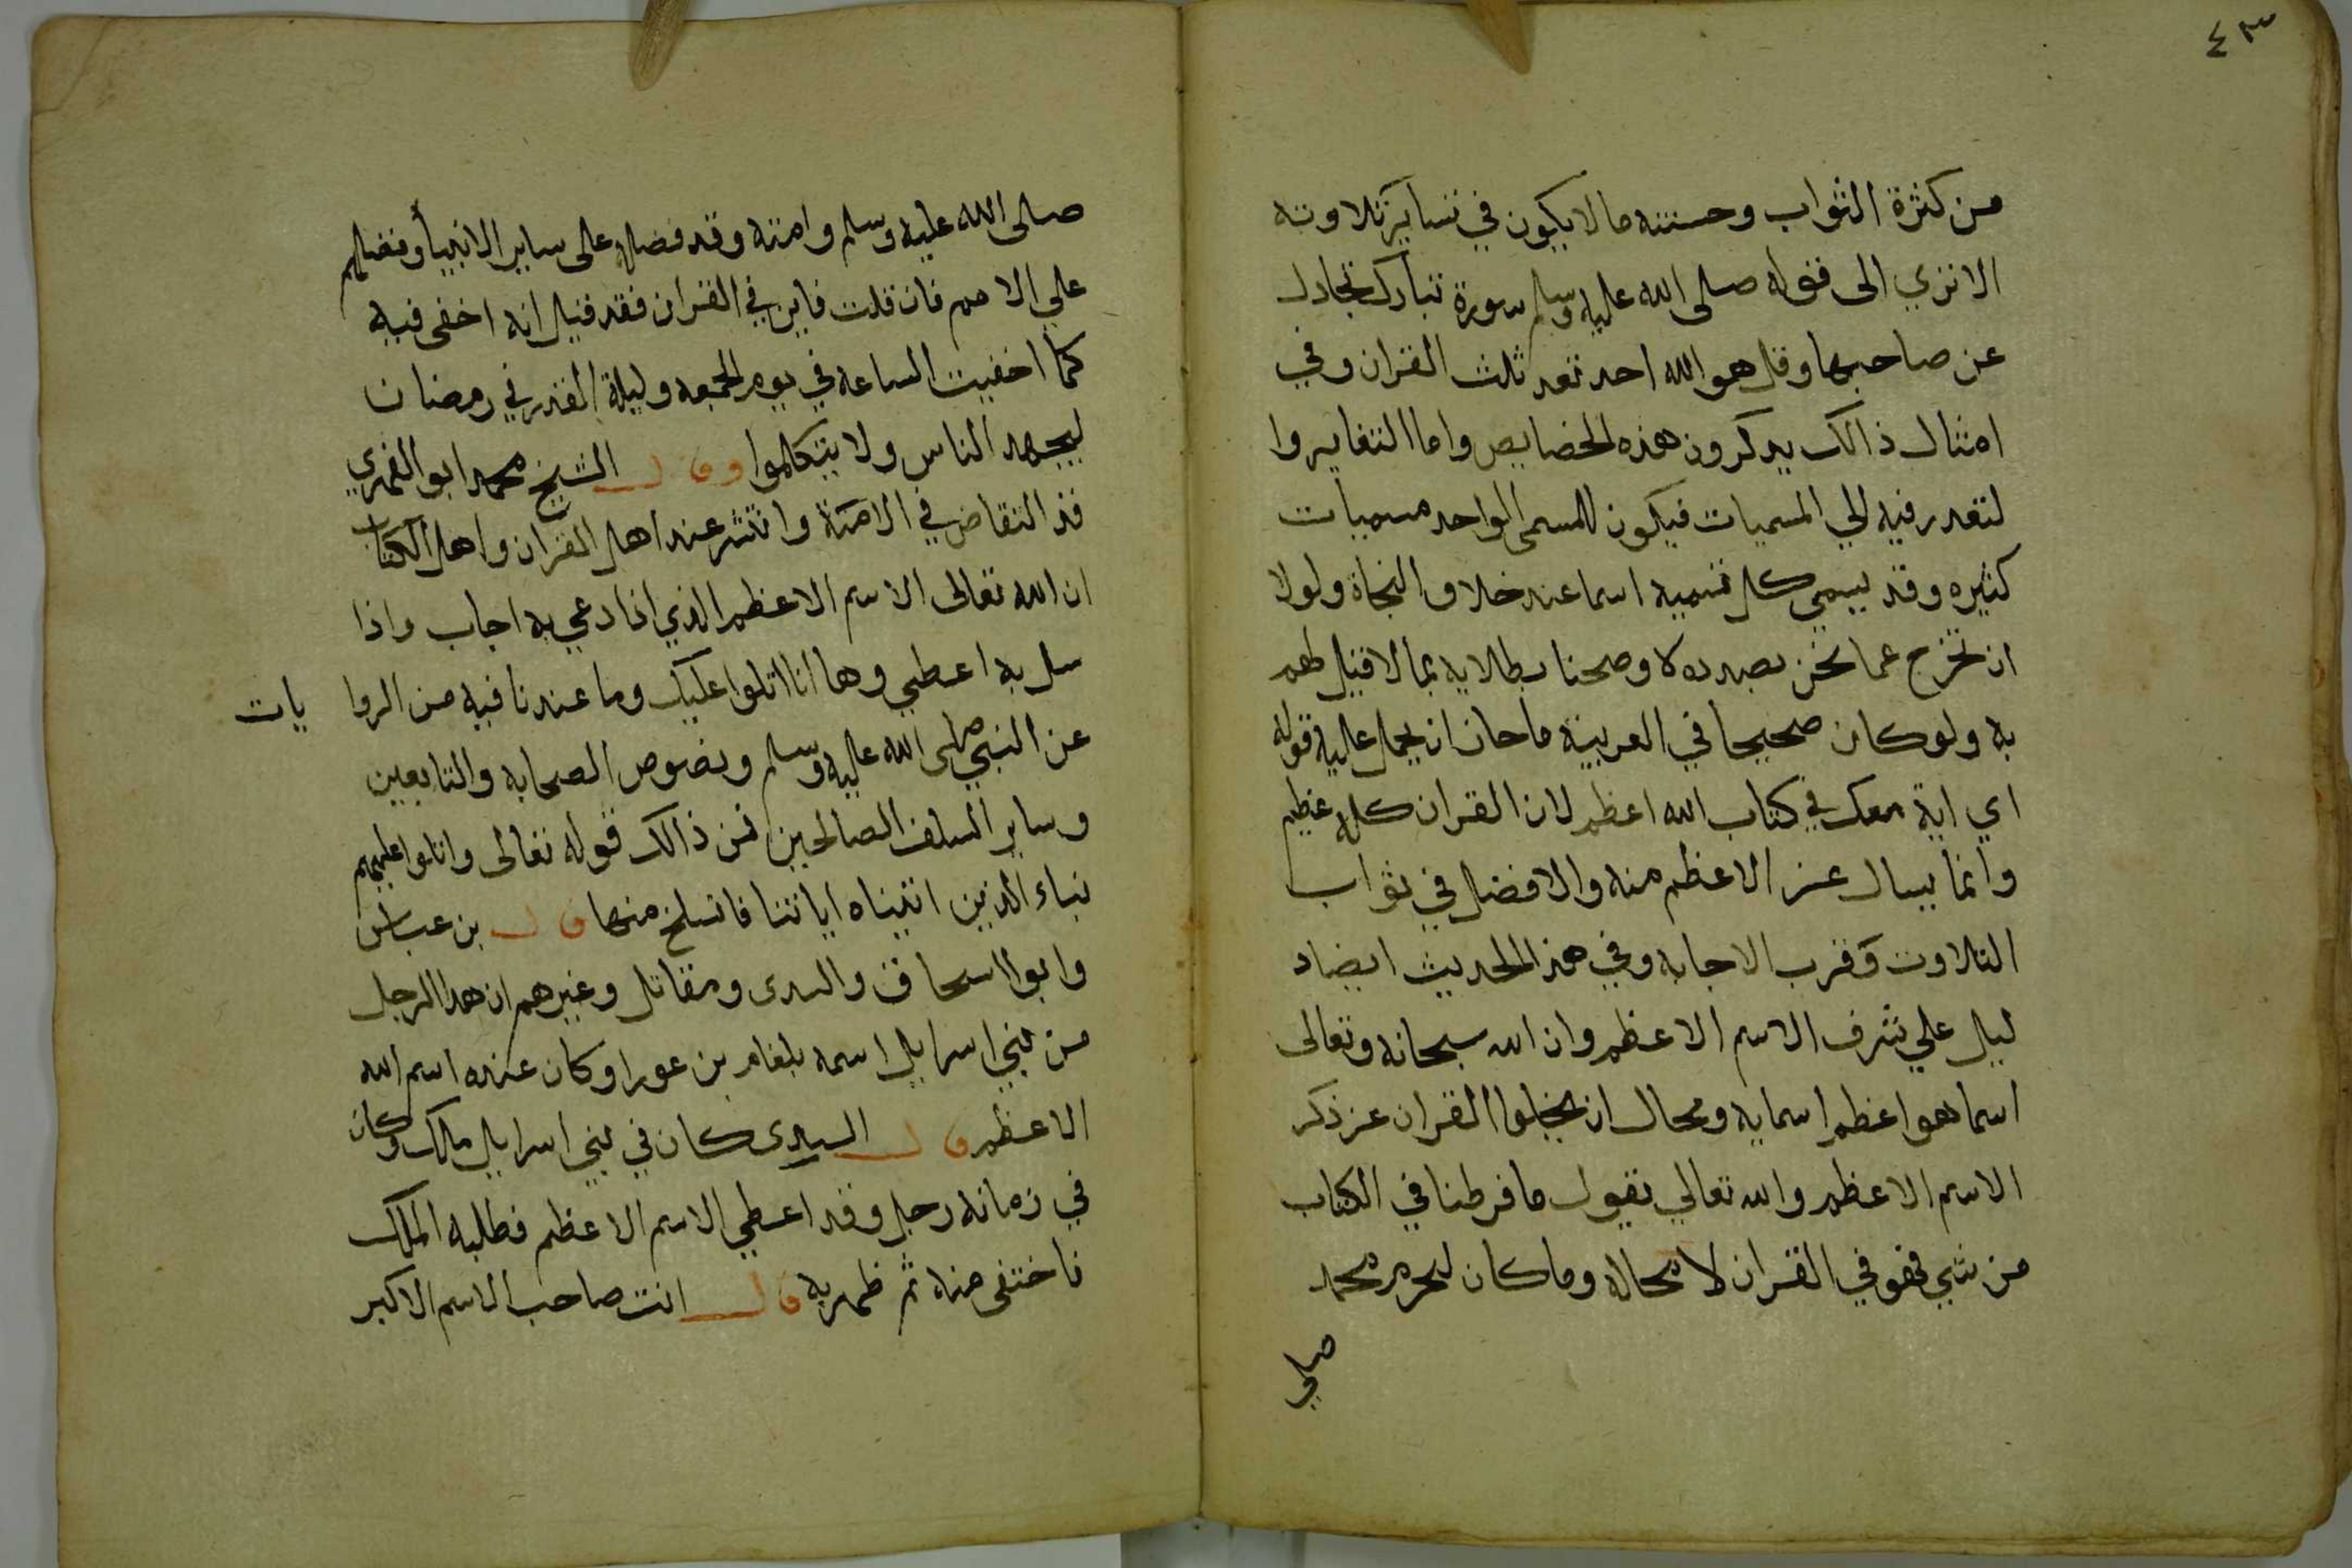 ٤٣
من كثرة الثواب وحسنته ما لا يكون في تساير تلاوته
الا تري الى قوله صلى الله عليه وسلم سورة تبارك تجادل
عن صاحبها وقل هو الله احد تعد ثلث القران وفي
امثال ذالك يدكرون هذه الخصايص واما التغايروا
لتعدر فيه الي المسميات فيكون للمسمى الواحد مسميات
كثيره وقد يسمي كل تسمية اسما عند خلاو النحاة ولولا
ان نخرج عما نحن بصدده لا وضحنا بطلانه بما لا قيل لهم
به ولو كان صحيحا في العربية ما حان ان يحمل عليه قوله
اي اية معك في كتاب الله اعظم لان القران كله عظيم
وانما يسال عن الاعظم منه والافضل في ثواب
التلاوت وقرب الاجابه وفي هذا الحديث ايضاد
ليل علي شرف الاسم الاعظم وان الله سبحانه وتعالى
اسما هو اعظم اسمايه ومحال ان يخلوا القران عن ذكر
الاسم الاعظم والله تعالي يقول ما فرطنا في الكتاب
من شي فهو في القران لا محاله وما كان ليحرم محمد
صلي
صلى الله عليه وسلم وامته وقد فضله على ساير الانبيا وفضلهم
علي الامم فان قلت فاين في القران فقد قيل انه اخفى فيه
كما اخفيت الساعه في يوم الجمعه وليلة القدر في رمضان
ليجهد الناس ولا يتكلموا وقال الشيخ محمد ابو الفهري
قد التقاض في الامة وانتشر عند اهل القران واهل الكتاب
ان الله تعالى الاسم الاعظم الذي اذا دعي به اجاب واذا
سل به اعطي وها انا اتلوا عليك وما عندنا فيه من الروا يات
عن النبي صلى الله عليه وسلم ونصوص الصحابه والتابعين
وساير السلف الصالحين فمن ذالك قوله تعالى واتلوا عليهم
نباء الذين اتيناه اياتنا فانسلخ منها قال بن عباس
وابوا اسحاق والسدى ومقاتل وغيرهم ان هذا الرجل
من بني اسرايل اسمه بلعام بن عورا وكان عنده اسم الله
الاعظم قال السدى كان في بني اسرايل ملك وكان
في زمانه رجل وقد اعطي الاسم الاعظم فطلبه الملك
فاختفى منه ثم ظهر به قال انت صاحب الاسم الاكبر